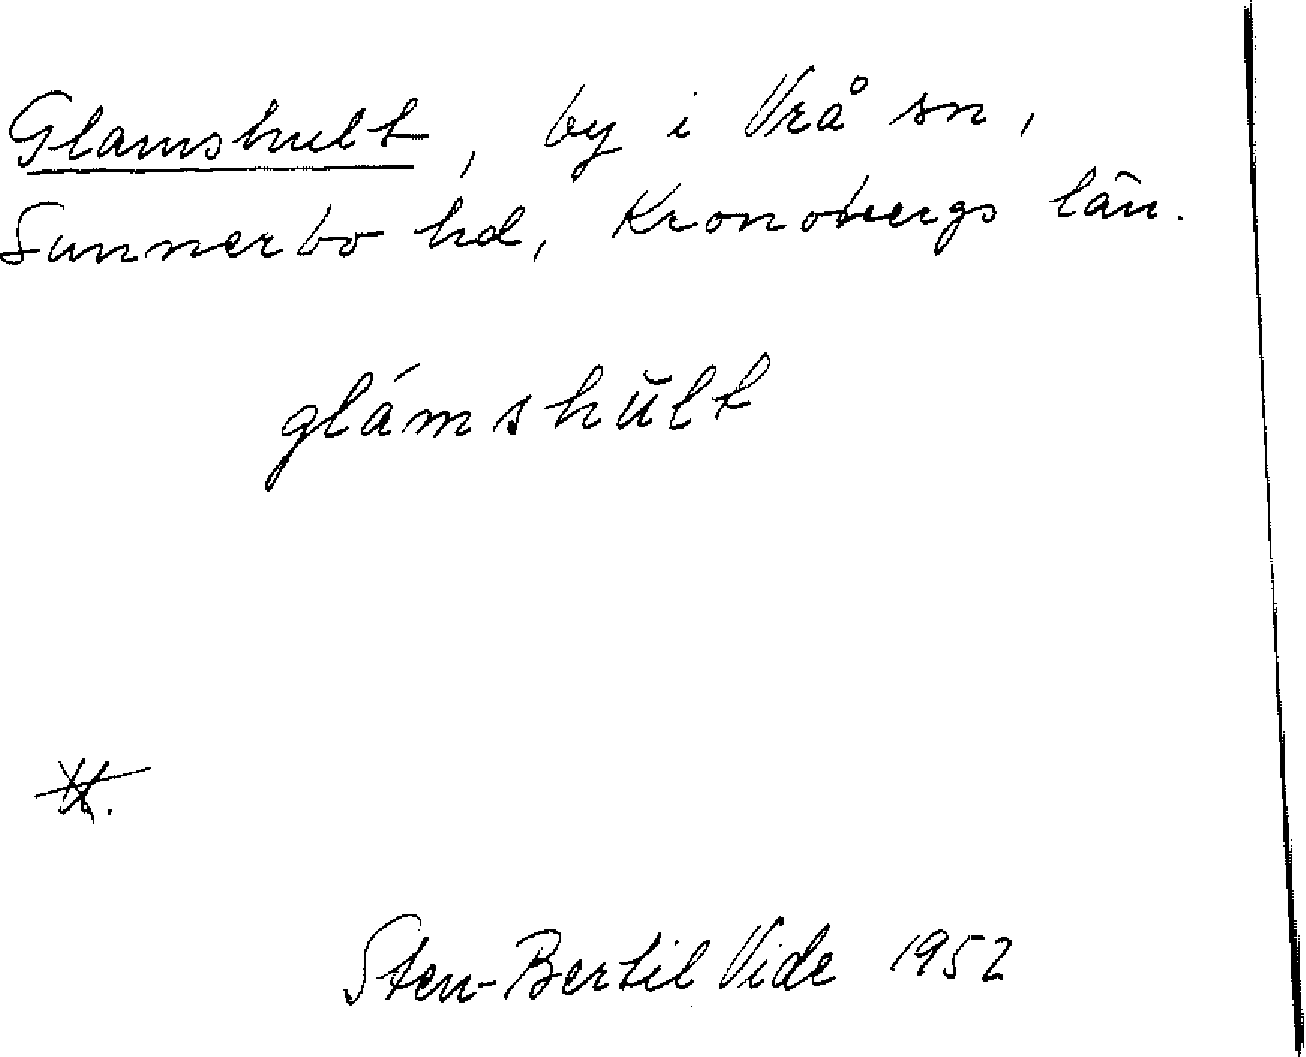 Glamshult, by i Vrå sn,
Sunnerbo hd, Kronobergs län.
glámshŭlt
Sten-Bertil Vide 1952